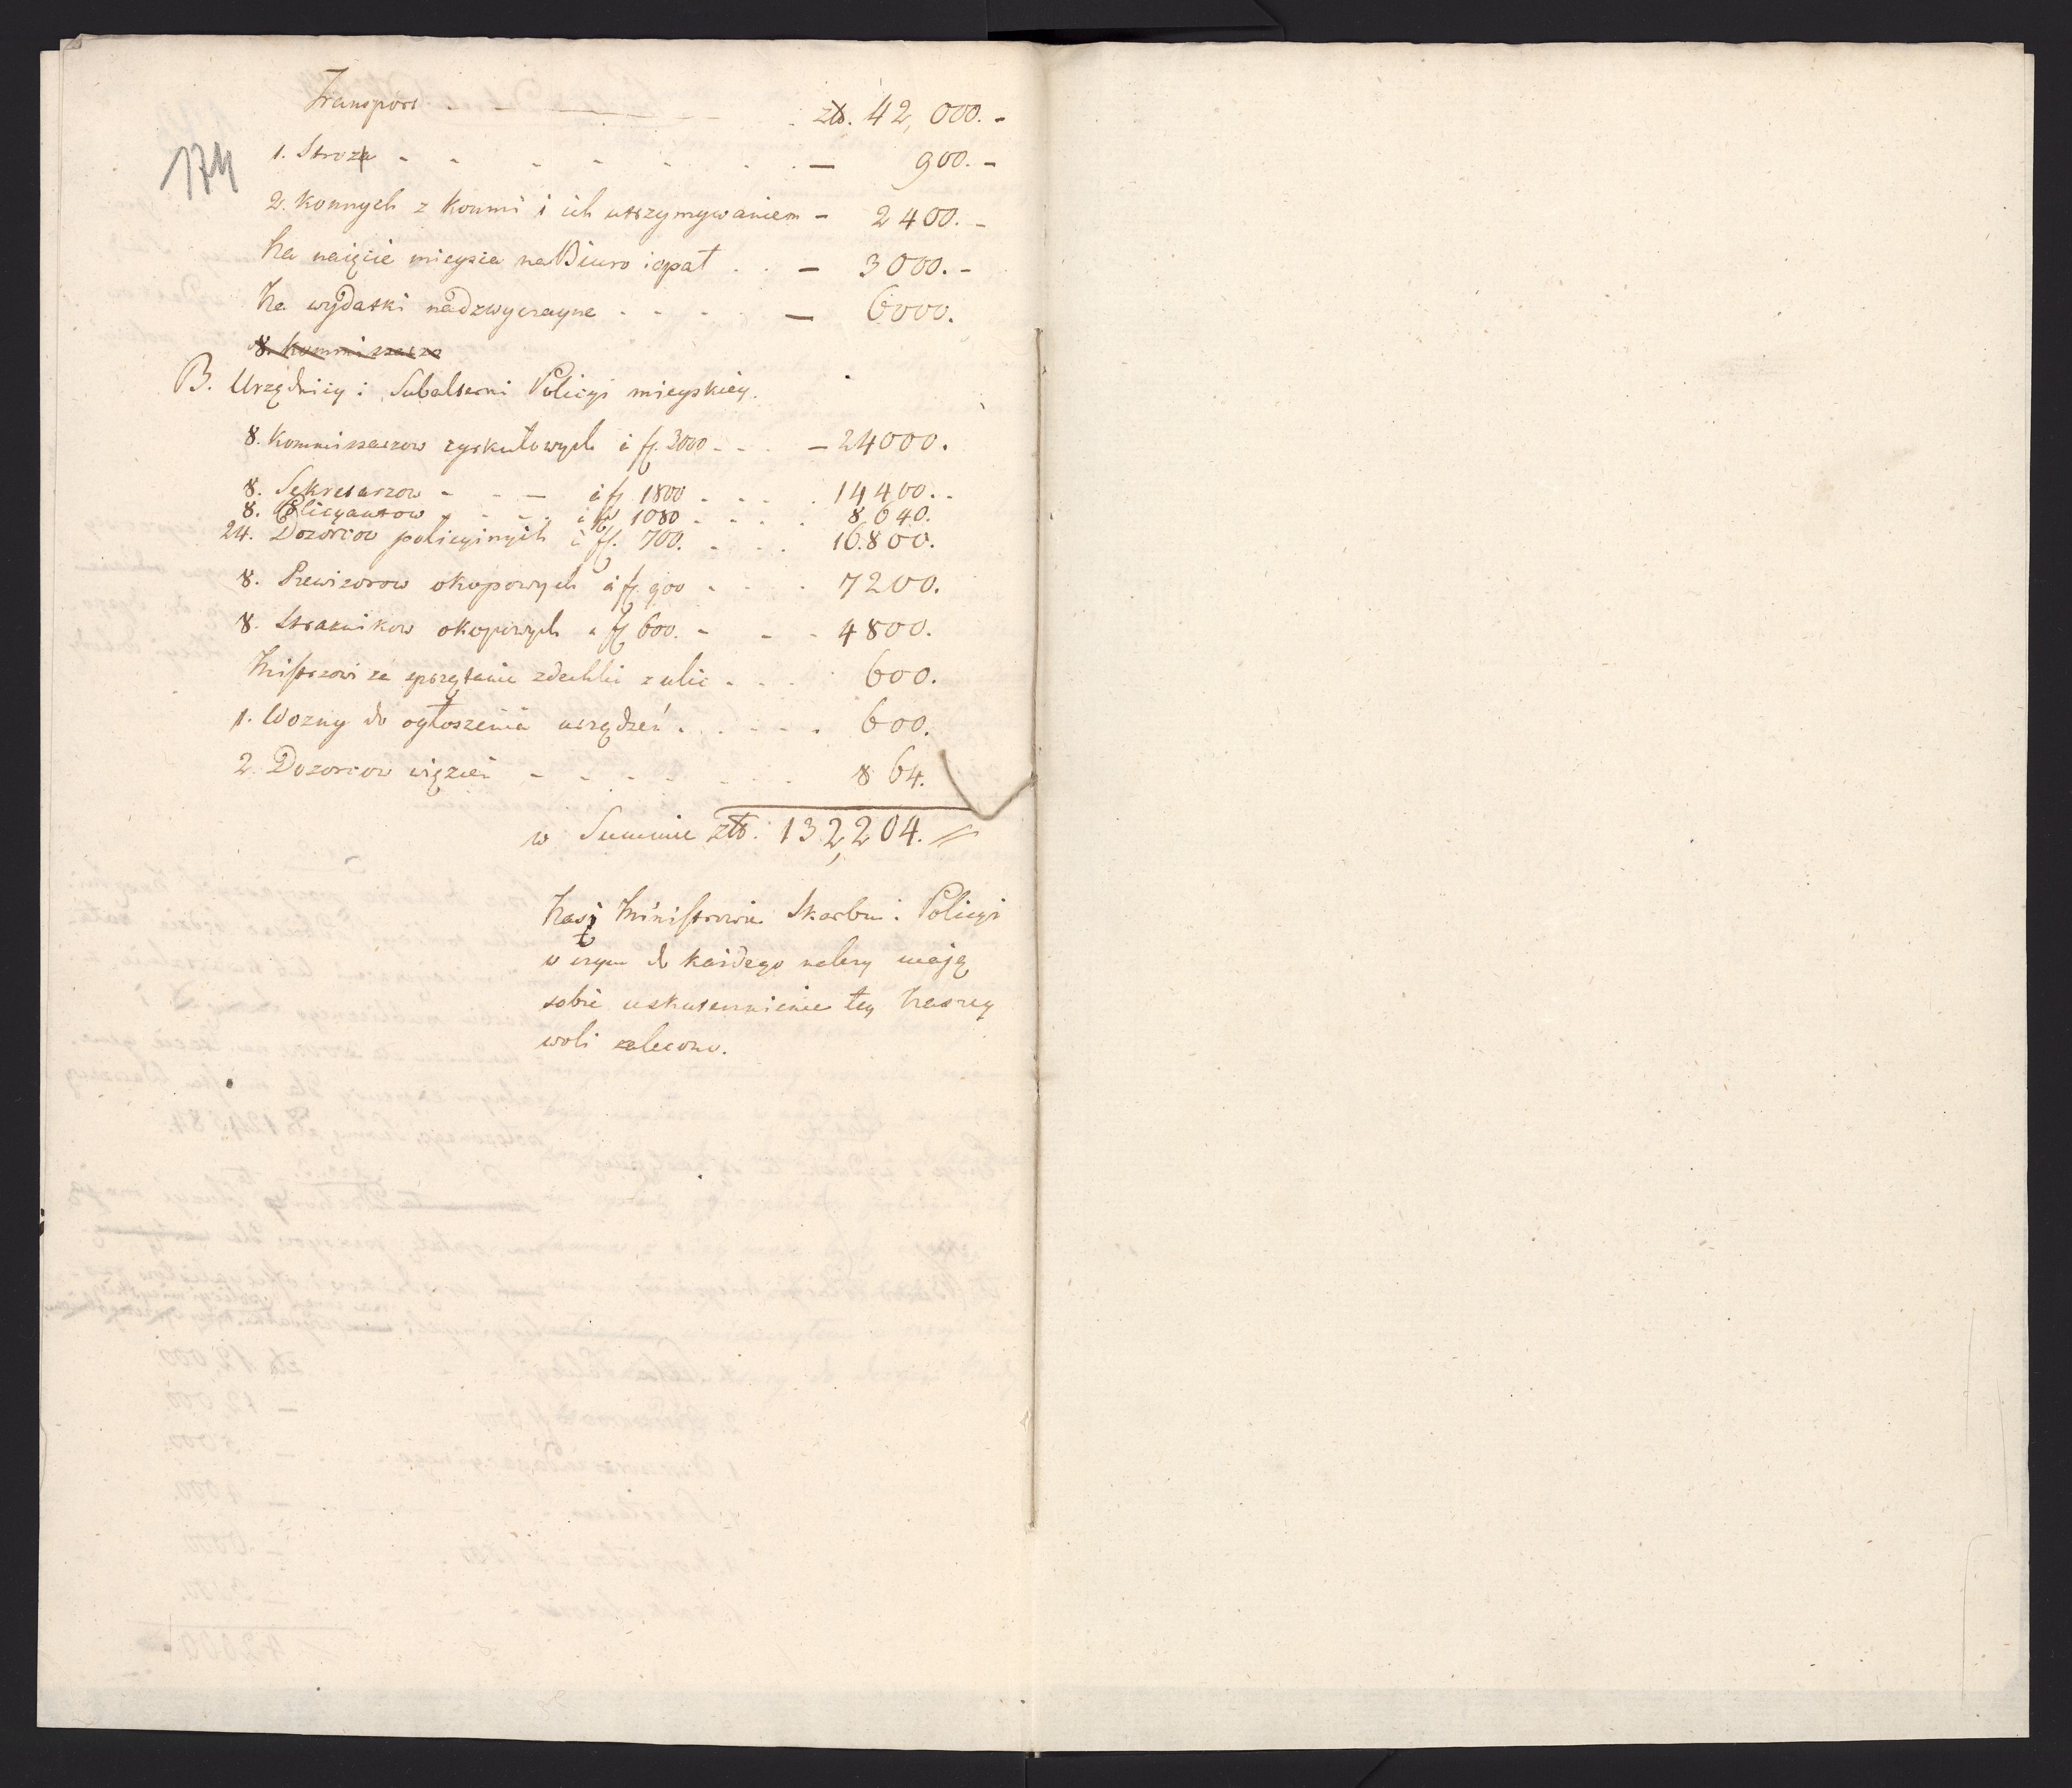 Transport . - - - - . złt. 42,000. -
174
1. Stroża - - - - - . . — 900. -
2. Konnych z konmi i ich utrzymywaniem - 2400. -
Na naięcie mieysca na Biuro i opał . . — 3000. -
Na wydatki nadzwyczayne . - - - — 6000.
8. Kommissarzo
B. Urzędnicy i Subalterni Policyi mieyskiey.
8. Kommissarzow cyrkułowych à f. 3000 - - - — 24000.
8. Sekretarzow - - — à f. 1800 . - - . 14400. -
8. Policyantow - - - . à f. 1080 - - - . 8640.
24. Dozorcow policyinych à f. 700. . - . 16.800.
8. Rewizorow okopowych à f. 900 - - - 7200.
8. Strażnikow okopowych à f. 600. - - - 4800.
Mistrzowi za sprzątanie zdechlin z ulic - - - 600.
1. Wozny do ogłoszenia urządzeń . . - - - . 600.
2. Dozorcow więzień - - - - - - - 864.
w Summie złt. 132,204.
Nasi Ministrowie Skarbu i Policyi
w czym do każdego należy mają
sobie uskutecznienie tey Naszey
woli zalecono.